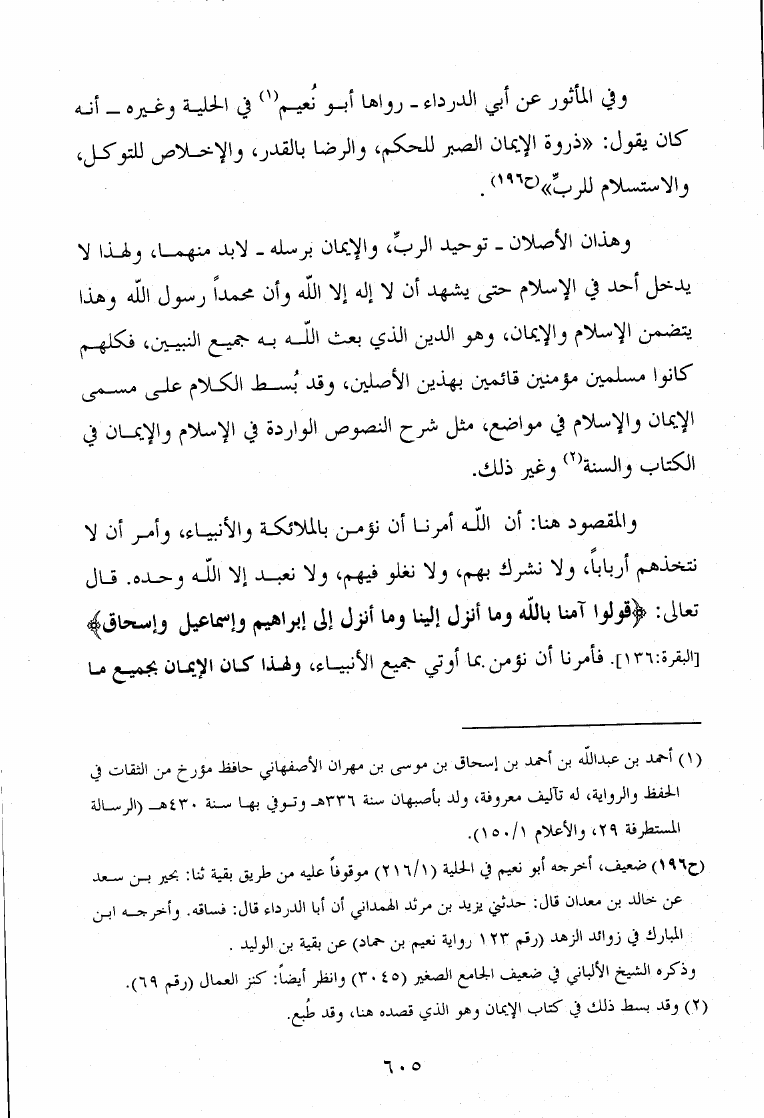 وفي المأثور عن أبي الدرداء ـ رواها أبو نُعيم(١) في الحلية وغيره ـ أنه
كان يقول: «ذروة الإيمان الصبر للحكم، والرضا بالقدر، والإخلاص للتوكل،
والاستسلام للربِّ»(ح١٩٦).
وهذان الأصلان ـ توحيد الربِّ، والإيمان برسله ـ لابد منهما، ولهذا لا
يدخل أحد في الإسلام حتى يشهد أن لا إله إلا الله وأن محمداً رسول الله وهذا
يتضمن الإسلام والإيمان، وهو الدين الذي بعث الله به جميع النبيين، فكلهم
كانوا مسلمين مؤمنين قائمين بهذين الأصلين، وقد بُسط الكلام على مسمى
الإيمان والإسلام في مواضع، مثل شرح النصوص الواردة في الإسلام والإيمان في
الكتاب والسنة(٢) وغير ذلك.
والمقصود هنا: أن الله أمرنا أن نؤمن بالملائكة والأنبياء، وأمر أن لا
نتخذهم أرباباً، ولا نشرك بهم، ولا نغلو فيهم، ولا نعبد إلا الله وحده. قال
تعالى: ﴿قولوا آمنا بالله وما أنزل إلينا وما أنزل إلى إبراهيم وإسماعيل وإسحاق﴾
[البقرة:١٣٦]. فأمرنا أن نؤمن بما أوتي جميع الأنبياء، ولهذا كان الإيمان بجميع ما
(١) أحمد بن عبدالله بن أحمد بن إسحاق بن موسى بن مهران الأصفهاني حافظ مؤرخ من الثقات في
الحفظ والرواية، له تآليف معروفة، ولد بأصبهان سنة ٣٣٦هـ وتوفي بها سنة ٤٣٠هـ (الرسالة
المستطرفة ٢٩، والأعلام ١٥٠/١).
(ح١٩٦) ضعيف، أخرجه أبو نعيم في الحلية (٢١٦/١) موقوفاً عليه من طريق بقية ثنا: بحير بن سعد
عن خالد بن معدان قال: حدثني يزيد بن مرثد الهمداني أن أبا الدرداء قال: فساقه. وأخرجه ابن
المبارك في زوائد الزهد (رقم ١٢٣ رواية نعيم بن حماد) عن بقية بن الوليد .
وذكره الشيخ الألباني في ضعيف الجامع الصغير (٣٠٤٥) وانظر أيضاً: كنز العمال (رقم ٦٩).
(٢) وقد بسط ذلك في كتاب الإيمان وهو الذي قصده هنا، وقد طُبع.
٦٠٥